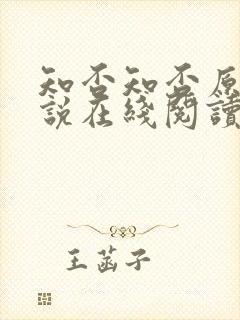 知否知否原
说在綫閱讀
王菡子